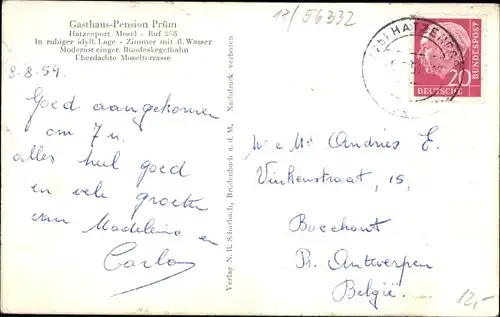 17/56332
Gasthaus-Pension Prüm
Hatzenport/Mosel - Ruf 258
In ruhiger idyll. Lage - Zimmer mit fl. Wasser
Modernst einger. Bundeskegelbahn
Überdachte Moselterrasse
8.8.59.
Goed aangekomen
om 7 u.
alles heel goed
en vele groeten
van Madeleine en
Carlo
Verlag N. R. Scharbach, Brodenbach a. d. M. Nachdruck verboten
HATZENPORT
DEUTSCHE BUNDESPOST
20
M & Mr Andries E.
Vinkenstraat, 15,
Boechout
Pr. Antwerpen
België.
12,-